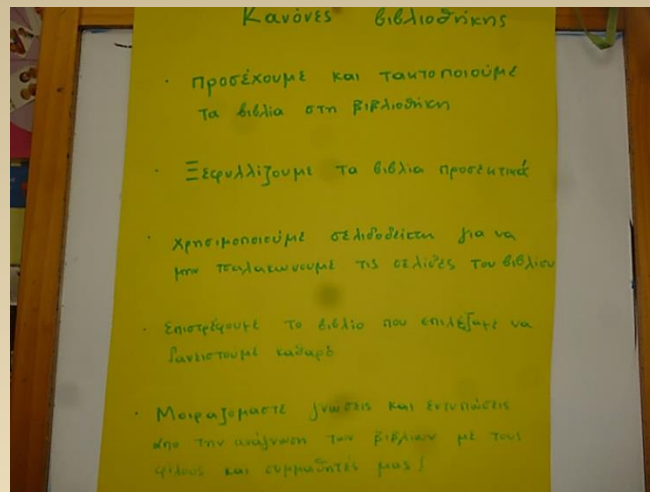 Κανόνες βιβλιοθήκης
· Προσέχουμε και τακτοποιούμε
τα βιβλία στη βιβλιοθήκη
· Ξεφυλλίζουμε τα βιβλία προσεκτικά
· Χρησιμοποιούμε σελιδοδείκτη για να
μην τσαλακώνουμε τις σελίδες του βιβλίου
· Επιστρέφουμε το βιβλίο που επιλέξαμε να
δανειστούμε καθαρό
· Μοιραζόμαστε γνώσεις και εντυπώσεις
από την ανάγνωση των βιβλίων με τους
φίλους και συμμαθητές μας!